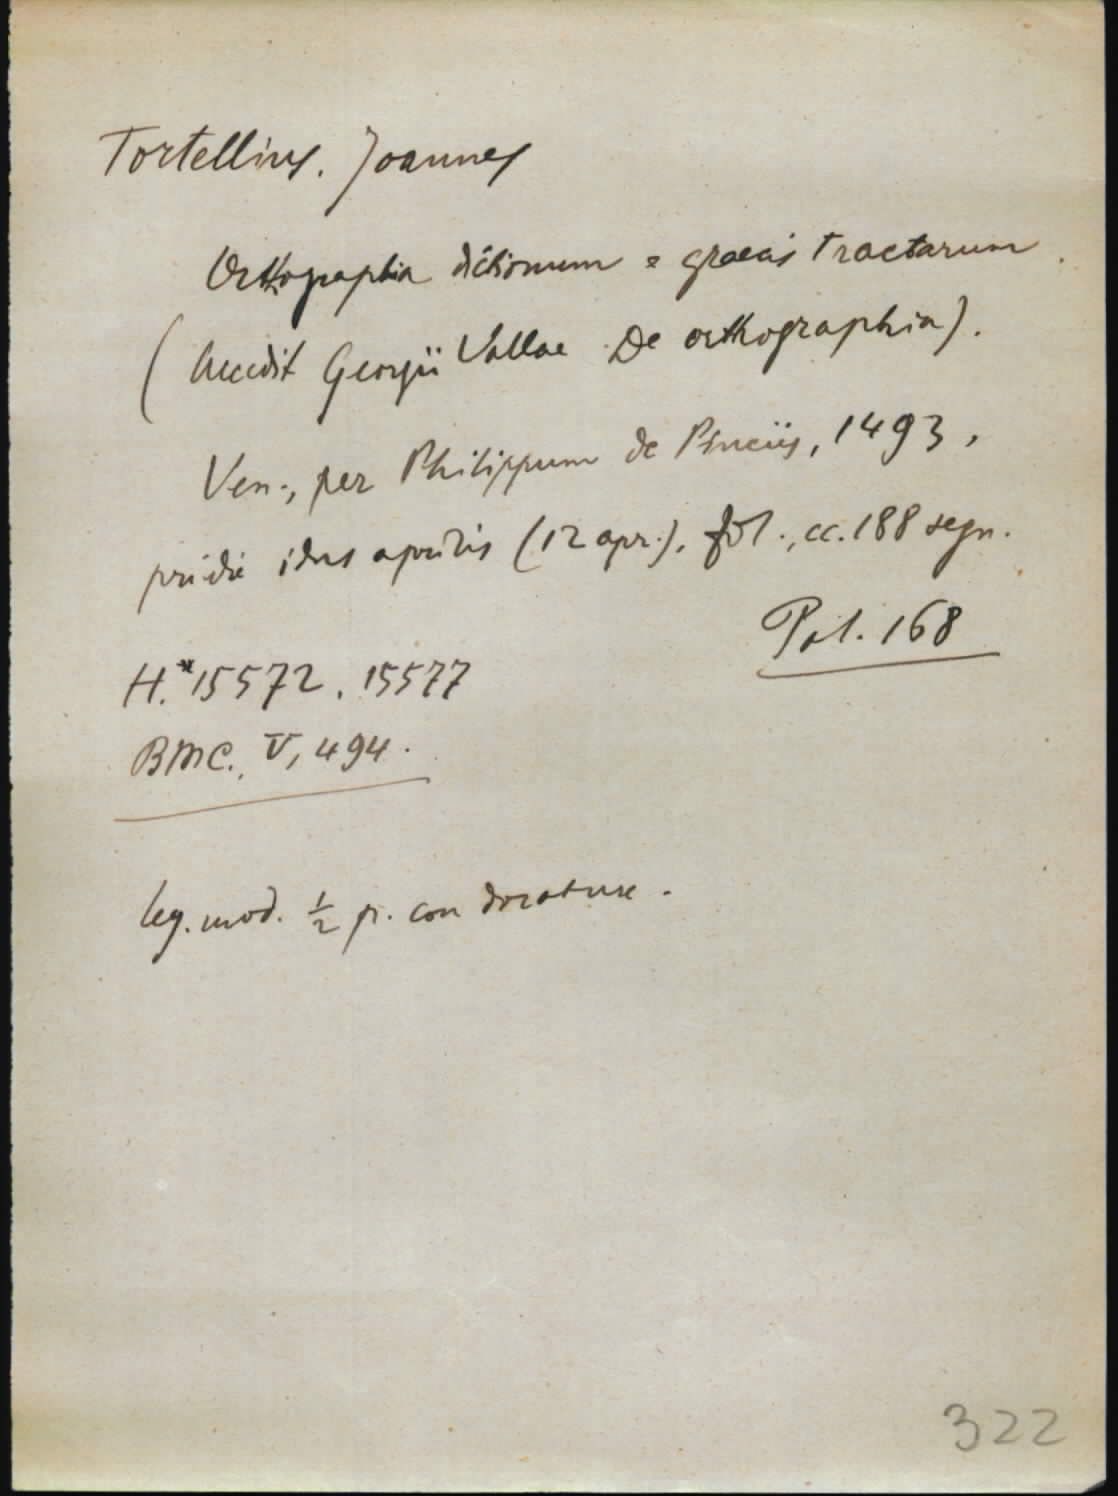 Tortellius. Joannes
Orthographia dictionum e graecis tractarum.
(Accedit Georgii Vallae De orthographia).
Ven., per Philippum de Pinciis, 1493,
pridie idus aprilis (12 apr.). fol., cc. 188 segn.
Pal. 168
H.*15572. 15577
BMC., V, 494.
leg. mod. ½ p. con dorature.
322